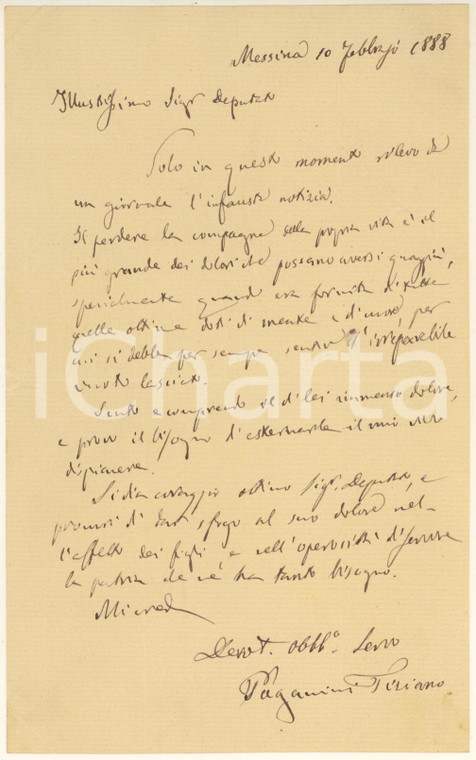 Messina 10 Febbrajo 1888
Illustrissimo Sigr Deputato
Solo in questo momento rilevo da
un giornale l'infausta notizia.
Il perdere la compagna della propria vita è il
più grande dei dolori che possano aversi quaggiù,
specialmente quando era fornita di tutte
quelle ottime doti di mente e di cuore, per
cui si debba per sempre sentire l'irreparabile
vuoto lasciato.
Sento e comprendo il di lei immenso dolore,
e provo il bisogno d'esternarle il mio vivo
dispiacere.
Si dia coraggio ottimo Sigr. Deputato, e
procuri di dare sfogo al suo dolore nel-
l'affetto dei figli e nell'operosità di servire
la patria che n'è ha tanto bisogno.
Mi creda
Devot. Obbb.o Servo
Paganini Tiziano
iCharta